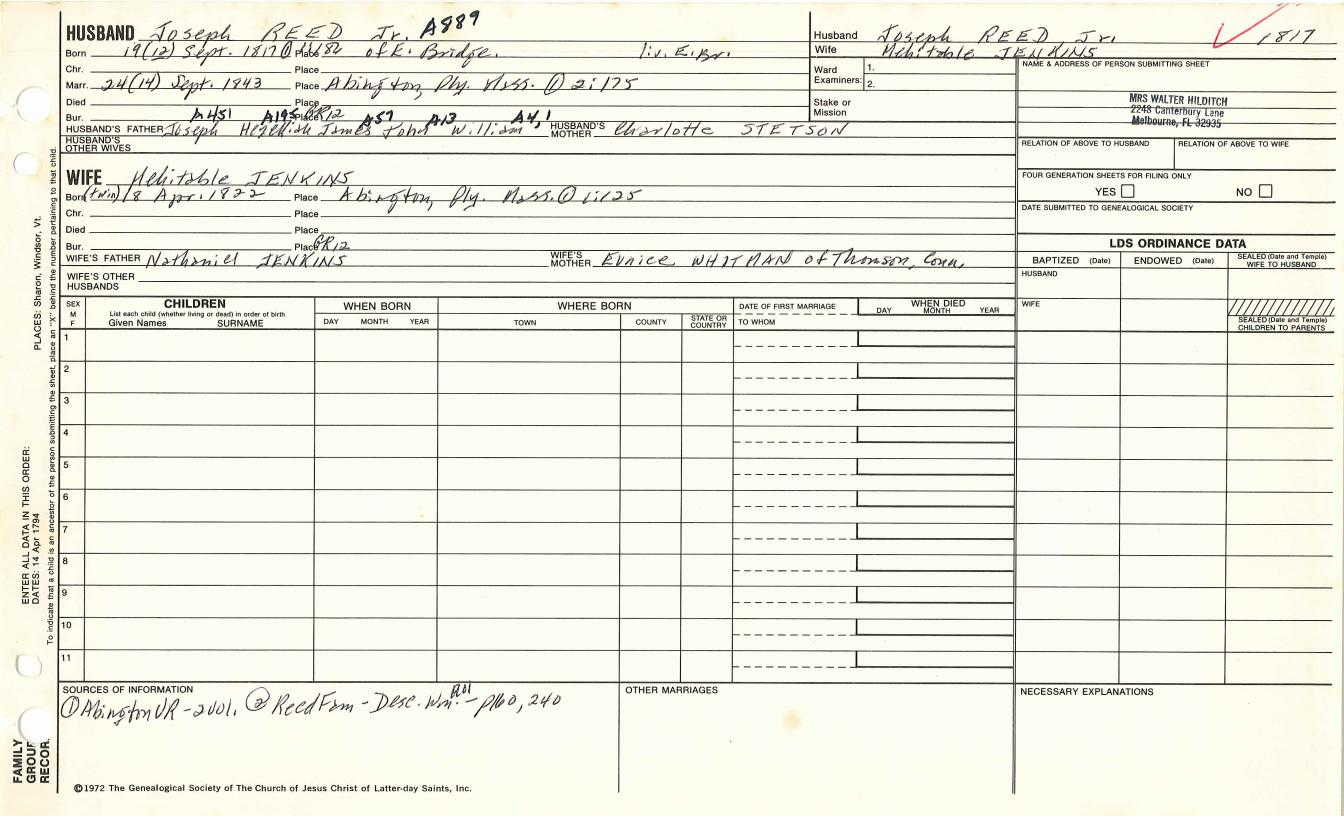 HUSBAND Joseph REED Jr. A889
Born 19(12) Sept. 1817 ① Place of E. Bridge. liv. E.Br.
Chr. Place
Marr. 24(14) Sept. 1843 Place Abington, Ply. Mass. ① 2:175
Died Place
Bur. Place GR12
A451 A195 A57 A13 A4,1
HUSBAND'S FATHER Joseph Hezekiah James John William HUSBAND'S MOTHER Charlotte STETSON
HUSBAND'S OTHER WIVES
WIFE Mehitable JENKINS
Born (twin) 18 Apr. 1822 Place Abington, Ply. Mass. ① 1:125
Chr. Place
Died Place
Bur. Place GR12
WIFE'S FATHER Nathaniel JENKINS WIFE'S MOTHER Eunice WHITMAN of Thomson, Conn.
WIFE'S OTHER HUSBANDS
Husband Joseph REED, Jr. 1817
Wife Mehitable JENKINS
Ward Examiners: 1.
2.
Stake or Mission
NAME & ADDRESS OF PERSON SUBMITTING SHEET
MRS WALTER HILDITCH
2248 Canterbury Lane
Melbourne, FL 32935
RELATION OF ABOVE TO HUSBAND RELATION OF ABOVE TO WIFE
FOUR GENERATION SHEETS FOR FILING ONLY
YES NO
DATE SUBMITTED TO GENEALOGICAL SOCIETY
LDS ORDINANCE DATA
BAPTIZED (Date) ENDOWED (Date) SEALED (Date and Temple) WIFE TO HUSBAND
HUSBAND
WIFE
SEALED (Date and Temple) CHILDREN TO PARENTS
SEX M F
CHILDREN
List each child (whether living or dead) in order of birth
Given Names SURNAME
WHEN BORN
DAY MONTH YEAR
WHERE BORN
TOWN COUNTY STATE OR COUNTRY
DATE OF FIRST MARRIAGE
TO WHOM
WHEN DIED
DAY MONTH YEAR
1
2
3
4
5
6
7
8
9
10
11
SOURCES OF INFORMATION
① Abington VR - 2Vol. ② Reed Fam - Desc. Wm. - p160, 240
OTHER MARRIAGES
NECESSARY EXPLANATIONS
©1972 The Genealogical Society of The Church of Jesus Christ of Latter-day Saints, Inc.
FAMILY GROUP RECOR
ENTER ALL DATA IN THIS ORDER:
DATES: 14 Apr 1794
PLACES: Sharon, Windsor, Vt.
To indicate that a child is an ancestor of the person submitting the sheet, place an "X" behind the number pertaining to that child.